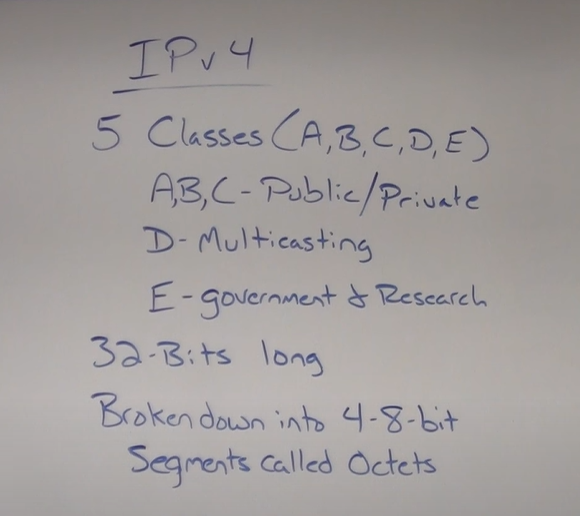 IPv4
5 Classes (A,B,C,D,E)
A,B,C - Public/Private
D - Multicasting
E - government & Research
32-Bits long
Broken down into 4-8-bit
Segments called Octets